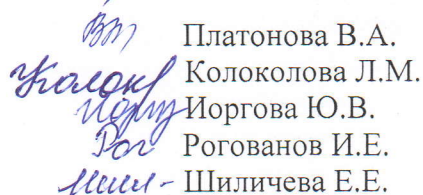 Платонова В.А.
Колоколова Л.М.
Йоргова Ю.В.
Рогованов И.Е.
Шиличева Е.Е.